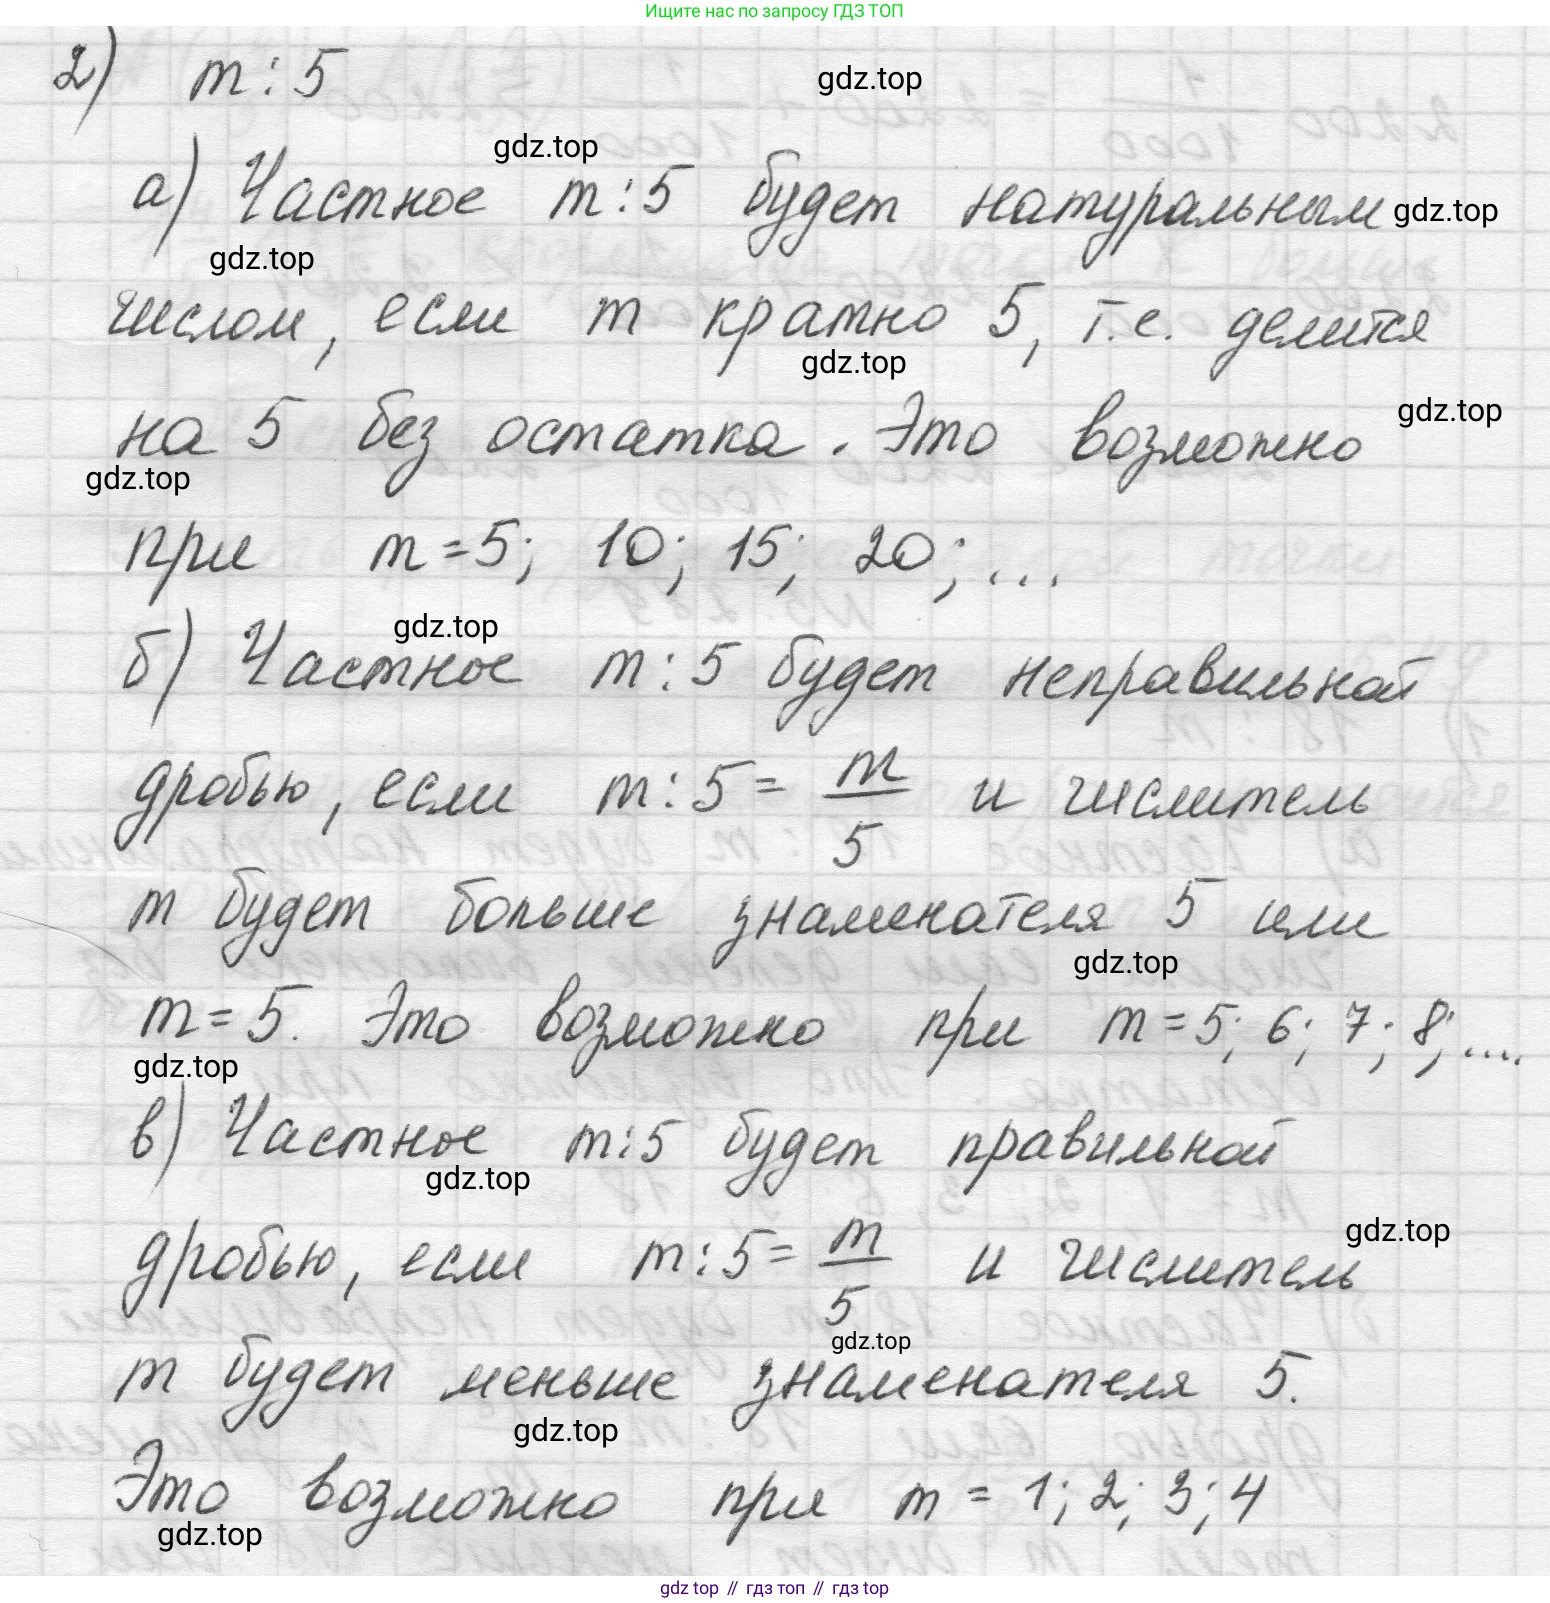 Ищите нас по запросу ГДЗ ТОП
2) m : 5
gdz.top
gdz.top
а) Частное m : 5 будет натуральным
gdz.top
gdz.top
числом, если m кратно 5, т.е. делится
gdz.top
gdz.top
на 5 без остатка. Это возможно
gdz.top
при m = 5; 10; 15; 20; ...
gdz.top
б) Частное m : 5 будет неправильной
дробью, если m : 5 = m/5 и числитель
m будет больше знаменателя 5 или
gdz.top
m = 5. Это возможно при m = 5; 6; 7; 8; ....
gdz.top
в) Частное m : 5 будет правильной
gdz.top
gdz.top
дробью, если m : 5 = m/5 и числитель
gdz.top
m будет меньше знаменателя 5.
gdz.top
Это возможно при m = 1; 2; 3; 4
gdz.top
gdz top // гдз топ // гдз top